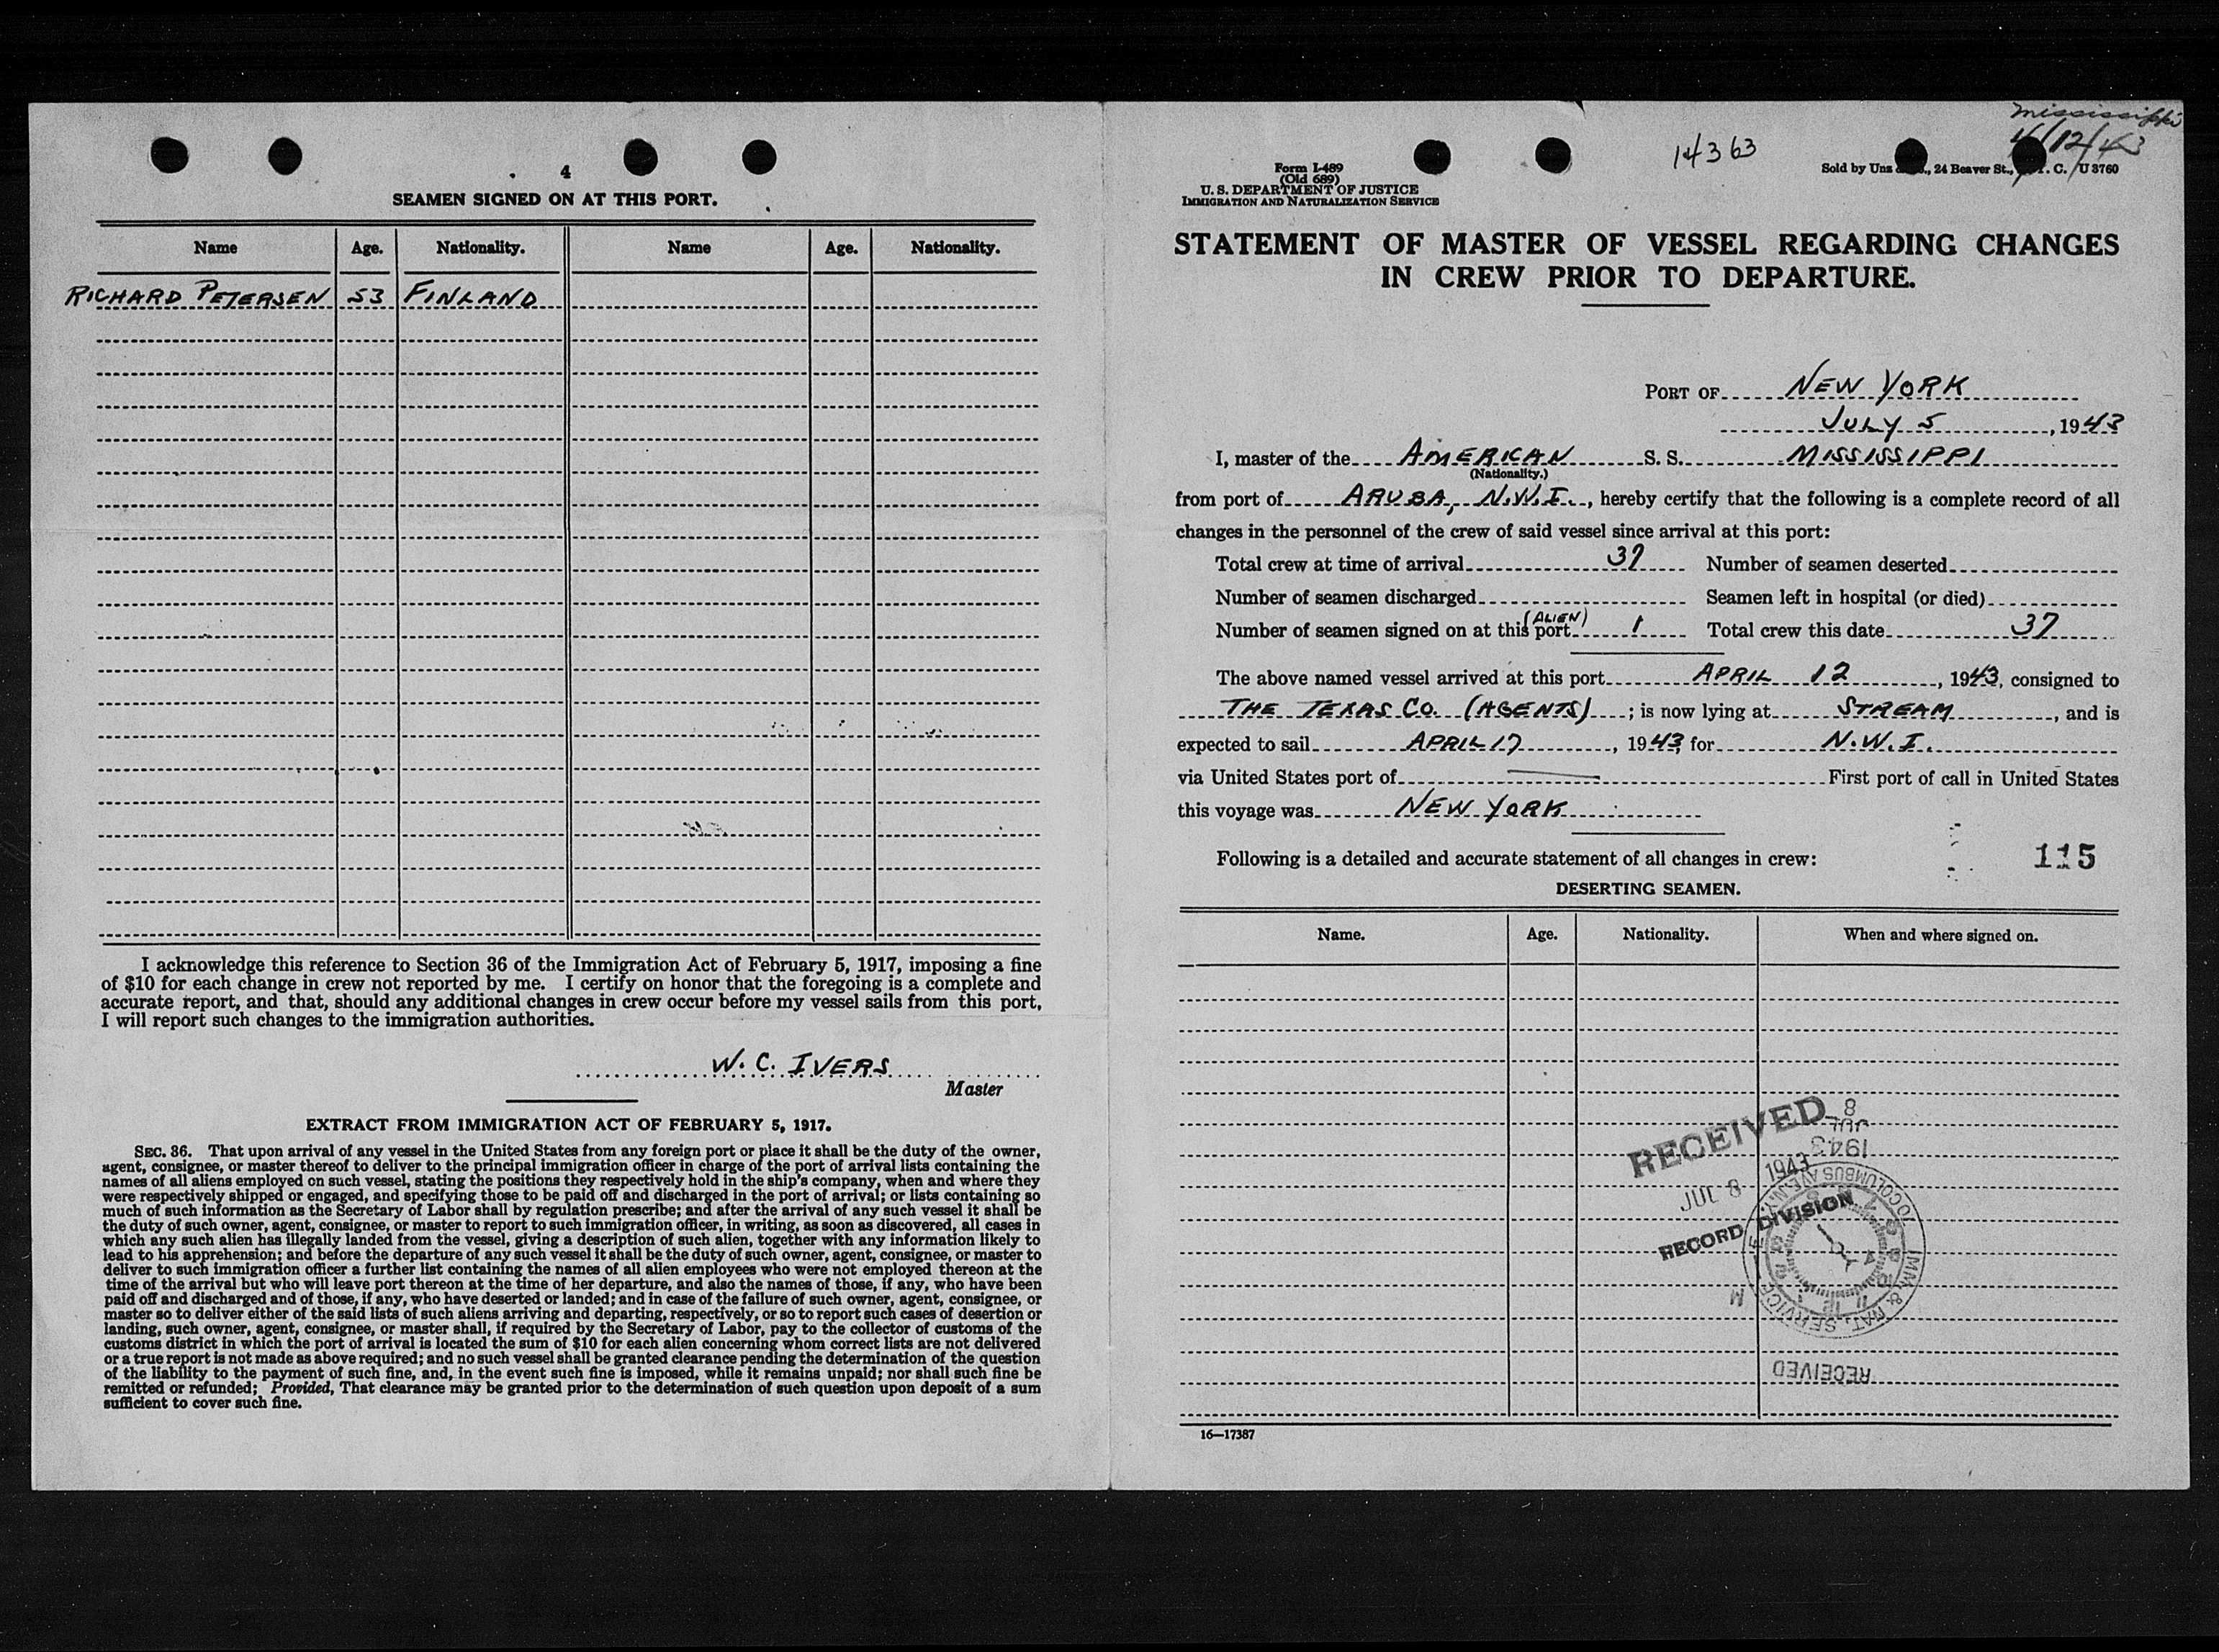 4
SEAMEN SIGNED ON AT THIS PORT.
Name Age. Nationality. Name Age. Nationality.
RICHARD PETERSEN 53 FINLAND
I acknowledge this reference to Section 36 of the Immigration Act of February 5, 1917, imposing a fine
of $10 for each change in crew not reported by me. I certify on honor that the foregoing is a complete and
accurate report, and that, should any additional changes in crew occur before my vessel sails from this port,
I will report such changes to the immigration authorities.
W. C. IVERS
Master
EXTRACT FROM IMMIGRATION ACT OF FEBRUARY 5, 1917.
SEC. 36. That upon arrival of any vessel in the United States from any foreign port or place it shall be the duty of the owner,
agent, consignee, or master thereof to deliver to the principal immigration officer in charge of the port of arrival lists containing the
names of all aliens employed on such vessel, stating the positions they respectively hold in the ship's company, when and where they
were respectively shipped or engaged, and specifying those to be paid off and discharged in the port of arrival; or lists containing so
much of such information as the Secretary of Labor shall by regulation prescribe; and after the arrival of any such vessel it shall be
the duty of such owner, agent, consignee, or master to report to such immigration officer, in writing, as soon as discovered, all cases in
which any such alien has illegally landed from the vessel, giving a description of such alien, together with any information likely to
lead to his apprehension; and before the departure of any such vessel it shall be the duty of such owner, agent, consignee, or master to
deliver to such immigration officer a further list containing the names of all alien employees who were not employed thereon at the
time of the arrival but who will leave port thereon at the time of her departure, and also the names of those, if any, who have been
paid off and discharged and of those, if any, who have deserted or landed; and in case of the failure of such owner, agent, consignee, or
master so to deliver either of the said lists of such aliens arriving and departing, respectively, or so to report such cases of desertion or
landing, such owner, agent, consignee, or master shall, if required by the Secretary of Labor, pay to the collector of customs of the
customs district in which the port of arrival is located the sum of $10 for each alien concerning whom correct lists are not delivered
or a true report is not made as above required; and no such vessel shall be granted clearance pending the determination of the question
of the liability to the payment of such fine, and, in the event such fine is imposed, while it remains unpaid; nor shall such fine be
remitted or refunded; Provided, That clearance may be granted prior to the determination of such question upon deposit of a sum
sufficient to cover such fine.
Mississippi
4/12/43
14363
Form I-489
(Old 689)
U. S. DEPARTMENT OF JUSTICE
IMMIGRATION AND NATURALIZATION SERVICE
Sold by Unz 24 Beaver St., Y. C. U 3760
STATEMENT OF MASTER OF VESSEL REGARDING CHANGES
IN CREW PRIOR TO DEPARTURE.
PORT OF NEW YORK
JULY 5, 1943
I, master of the AMERICAN S. S. MISSISSIPPI
(Nationality.)
from port of ARUBA, N.W.I., hereby certify that the following is a complete record of all
changes in the personnel of the crew of said vessel since arrival at this port:
Total crew at time of arrival 37 Number of seamen deserted
Number of seamen discharged Seamen left in hospital (or died)
Number of seamen signed on at this port (ALIEN) 1 Total crew this date 37
The above named vessel arrived at this port APRIL 12, 1943, consigned to
THE TEXAS CO. (AGENTS); is now lying at STREAM, and is
expected to sail APRIL 17, 1943, for N.W.I.
via United States port of — First port of call in United States
this voyage was NEW YORK
Following is a detailed and accurate statement of all changes in crew:
115
DESERTING SEAMEN.
Name. Age. Nationality. When and where signed on.
RECEIVED
JUL 8 1943
RECORD DIVISION
8
JUL
1943
70 COLUMBUS AVE. N.Y.
IMM & NAT. SERVICE
RECEIVED
16—17387